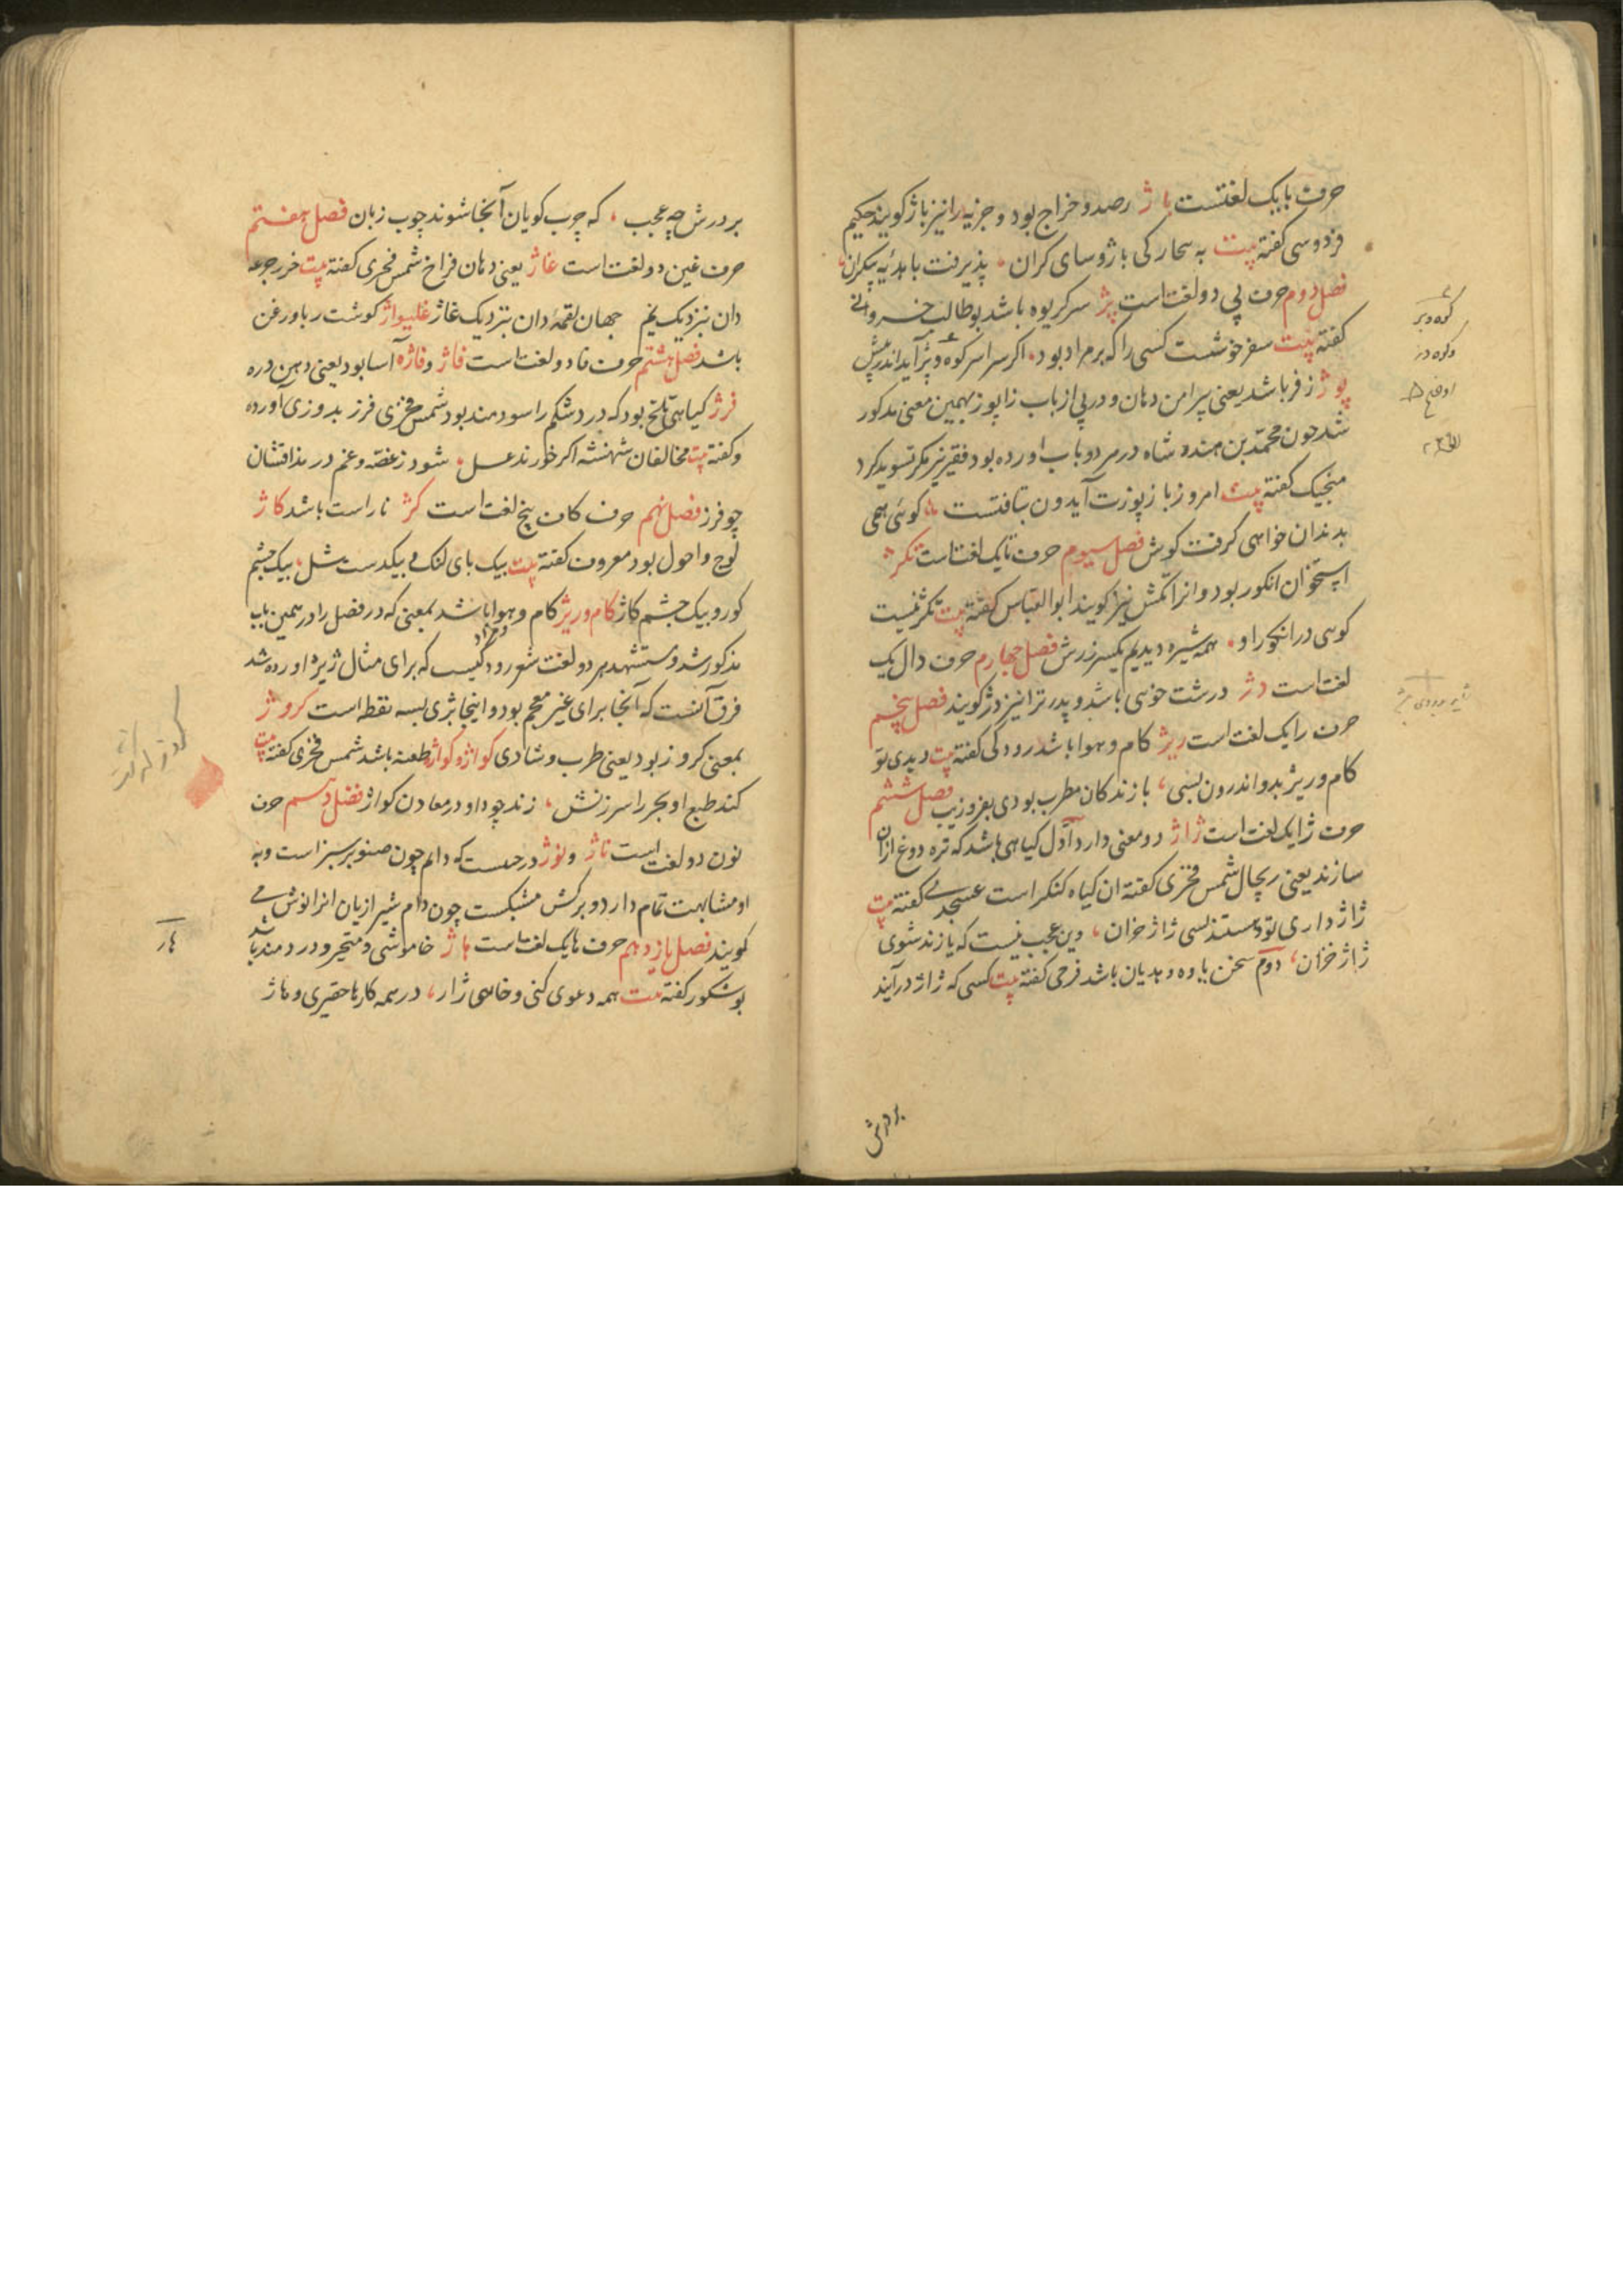 حرف با یک لغتست باژ رصد و خراج بود و جزیه را نیز باژ کویند حکیم
فردوسی کفته بیت به سحار کی باژ و سای کران، پذیرفت با هدئیه بیکران،
فصل دوم حرف پی دو لغت است پژ سر کریوه باشد بوطالب خسروانی
کفته بیت سفر خوشست کسی را که بر مراد بود، اکر سراسر کوه و پژ آید اندر پیش
پوژ زفر باشد یعنی پیرامن دهان و در پی از باب زا پوز بهمین معنی مذکور
شد چون محمّد بن هندوشاه در هر دو باب اورده بود فقیر نیز مکرّر تسوید کرد
منجیک کفته بیت امروز باز پوزت آیدون بتافتست کوئی همی
بدندان خواهی کرفت کوش فصل سیوم حرف تا یک لغت است تکژ
استخوان انکور بود و انرا تکش نیز کویند ابوالعبّاس کفته بیت تکژ نیست
کوهی در انکور او، همه شیره دیدیم یکسر زرش فصل چهارم حرف دال یک
لغت است دژ درشت خوی باشد و پدرتر انیز دژ کویند فصل پنجم
حرف را یک لغت است ریژ کام و هوا باشد رودکی کفته بیت دیدی تو
کام و ریژ بدو اندرون بسی، با زندکان مطرب بودی بفر و زیب فصل ششم
حرف ژا یک لغت است ژاژ دو معنی دارد اوّل کیاهی باشد که تره دوغ ازان
سازند یعنی ریچال شمس فخری کفته ان کیاه کنکر است عسجدی کفته بیت
ژاژ داری تو و هستند بسی ژاژ خوان، وین عجب نیست که یازند سوی
ژاژ خران، دوم سخن یاوه و هدیان باشد فرخی کفته بیت کسی که ژاژ درآیند
بردرش
کوه و بژ
بر درش چه عجب، که چرب کویان آنجا شوند چوب زبان فصل هفتم
حرف غین دو لغت است غاژ یعنی دهان فراخ شمس فخری کفته بیت خرد جرعه
دان بنزدیک یم جهان لقمۀ دان بنزدیک غاژ غلیواژ کوشت ربا و زغن
باشد فصل هشتم حرف فا دو لغت است فاژ و فاژه آسا بود یعنی دهن دره
فرژ کیاهی تلخ بود که درد شکم را سودمند بود شمس فخری فرز بدو زی اورده
و کفته بیت مخالفان شهنشه اکر خورند عسل، شود ز غصّه و غم در مذاقشان
چو فرز فصل نهم حرف کاف پنج لغت است کژ ناراست باشد کاژ
لوچ و احول بود معروف کفته بیت بیک پای لنک و بیکدست شل، بیک چشم
کور و بیک چشم کاژ کام و ریژ کام و هوا باشد بمعنی که در فصل را در همین باب
مذکور شد و مستشهد هر دو لغت شعر رودکیست که برای مثال ژیژه اورده شد
فرق آنست که آنجا برای غیر معجم بود و اینجا بژی بسه نقطه است کروژ
بمعنی کروز بود یعنی طرب و شادی کواژ و کواژه طعنه باشد شمس فخری کفته بیت
کند طبع او بحر را سرزنش، زند جود او در معادن کواژ فصل دهم حرف
نون دو لغت است ناژ و نوژ درختیست که دایم چون صنوبر سبز است و به
او مشابهت تمام دارد و برکش مشبکست چون دام شیرازیان انرا نوش می
کویند فصل یازدهم حرف ها یک لغت است هاژ خاموشی و متحیر و درد مند باشد
بوشکور کفته بیت همه دعوی کنی و خایی ژاژ، در همه کارها حقیری و هاژ
هاژ